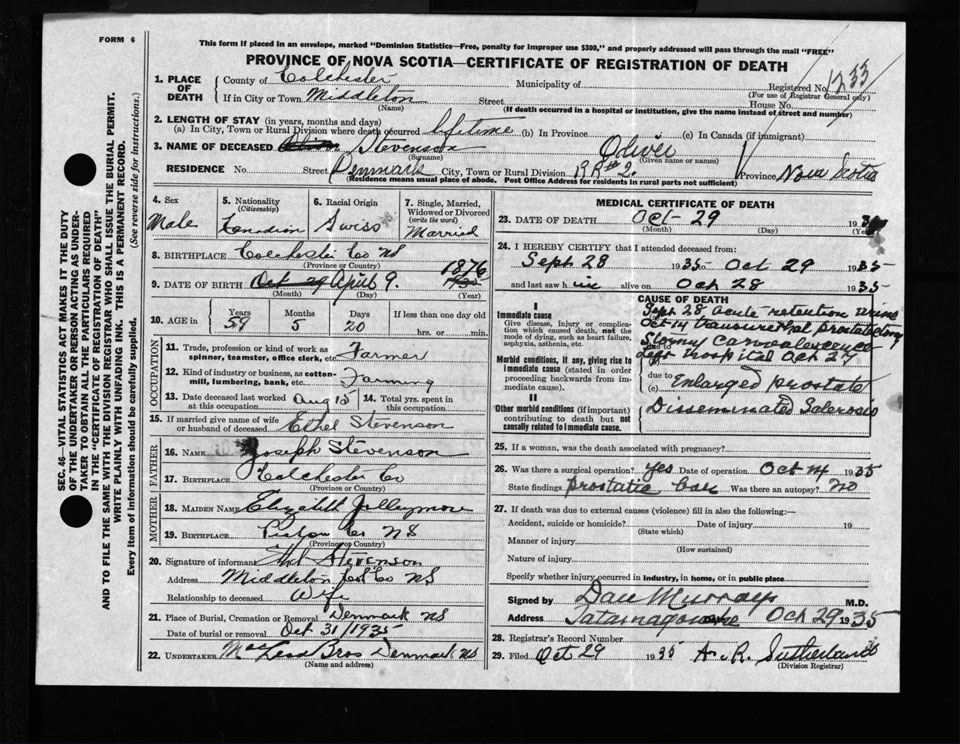 FORM 6
This form if placed in an envelope, marked "Dominion Statistics—Free, penalty for improper use $300," and properly addressed will pass through the mail "FREE"
PROVINCE OF NOVA SCOTIA—CERTIFICATE OF REGISTRATION OF DEATH
SEC. 46—VITAL STATISTICS ACT MAKES IT THE DUTY
OF THE UNDERTAKER OR PERSON ACTING AS UNDER-
TAKER TO OBTAIN ALL THE PARTICULARS REQUIRED
IN THE "CERTIFICATE OF REGISTRATION OF DEATH"
AND TO FILE THE SAME WITH THE DIVISION REGISTRAR WHO SHALL ISSUE THE BURIAL PERMIT.
WRITE PLAINLY WITH UNFADING INK. THIS IS A PERMANENT RECORD.
Every item of information should be carefully supplied. (See reverse side for instructions.)
1. PLACE OF DEATH
County of Colchester Municipality of Registered No. 1233
(For use of Registrar General only)
If in City or Town Middleton Street House No.
(Name) (If death occurred in a hospital or institution, give the name instead of street and number)
2. LENGTH OF STAY (in years, months and days)
(a) In City, Town or Rural Division where death occurred lifetime (b) In Province (c) In Canada (if immigrant)
3. NAME OF DECEASED Stevenson Oliver
(Surname) (Given name or names)
RESIDENCE No. Street Denmark City, Town or Rural Division RR# 2. Province Nova Scotia
(Residence means usual place of abode. Post Office Address for residents in rural parts not sufficient)
4. Sex
Male
5. Nationality
(Citizenship)
Canadian
6. Racial Origin
Swiss
7. Single, Married, Widowed or Divorced
(write the word)
Married
8. BIRTHPLACE Colchester Co NS
(Province or Country)
9. DATE OF BIRTH Oct 29 April 9. 1876 1935
(Month) (Day) (Year)
10. AGE in Years Months Days If less than one day old
59 5 20 hrs. or min.
OCCUPATION
11. Trade, profession or kind of work as spinner, teamster, office clerk, etc. Farmer
12. Kind of industry or business, as cotton-mill, lumbering, bank, etc. Farming
13. Date deceased last worked at this occupation Aug 15 14. Total yrs. spent in this occupation
15. If married give name of wife or husband of deceased Ethel Stevenson
FATHER
16. NAME Joseph Stevenson
17. BIRTHPLACE Colchester Co
(Province or Country)
MOTHER
18. MAIDEN NAME Elizabeth Jollymore
19. BIRTHPLACE Pictou Co NS
(Province or Country)
20. Signature of informant Stevenson
Address Middleton Col Co NS
Relationship to deceased Wife
21. Place of Burial, Cremation or Removal Denmark NS
Date of burial or removal Oct 31/1935
22. UNDERTAKER MacLead Bros Denmark NS
(Name and address)
MEDICAL CERTIFICATE OF DEATH
23. DATE OF DEATH Oct- 29 193
(Month) (Day) (Year)
24. I HEREBY CERTIFY that I attended deceased from:
Sept 28 1935 to Oct 29 1935
and last saw h im alive on Oct 28 1935
CAUSE OF DEATH
I
Immediate cause
Give disease, injury or complication which caused death, not the mode of dying, such as heart failure, asphyxia, asthenia, etc.
Sept 28 acute retention urine
Oct 14 transurethral prostatectomy
Stormy Convalescence
Left Hospital Oct 27
Morbid conditions, if any, giving rise to immediate cause (stated in order proceeding backwards from immediate cause).
due to
(c) Enlarged prostate
II
Other morbid conditions (if important) contributing to death but not causally related to immediate cause.
Disseminated Sclerosis
25. If a woman, was the death associated with pregnancy?
26. Was there a surgical operation? Yes Date of operation Oct 14 1935
State findings Prostatic Was there an autopsy? No
27. If death was due to external causes (violence) fill in also the following:—
Accident, suicide or homicide? Date of injury 19
(State which)
Manner of injury
(How sustained)
Nature of injury
Specify whether injury occurred in industry, in home, or in public place
Signed by Dan Murray M.D.
Address Tatamagouche Oct 29 1935
28. Registrar's Record Number
29. Filed Oct 29 1935 A. R. Sutherland
(Division Registrar)